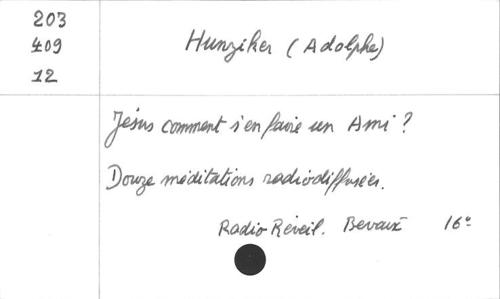 203
409
12
Hunziker (Adolphe)
Jésus comment s'en faire un Ami ?
Douze méditations radiodiffusées.
Radio Réveil. Bevaix 16°